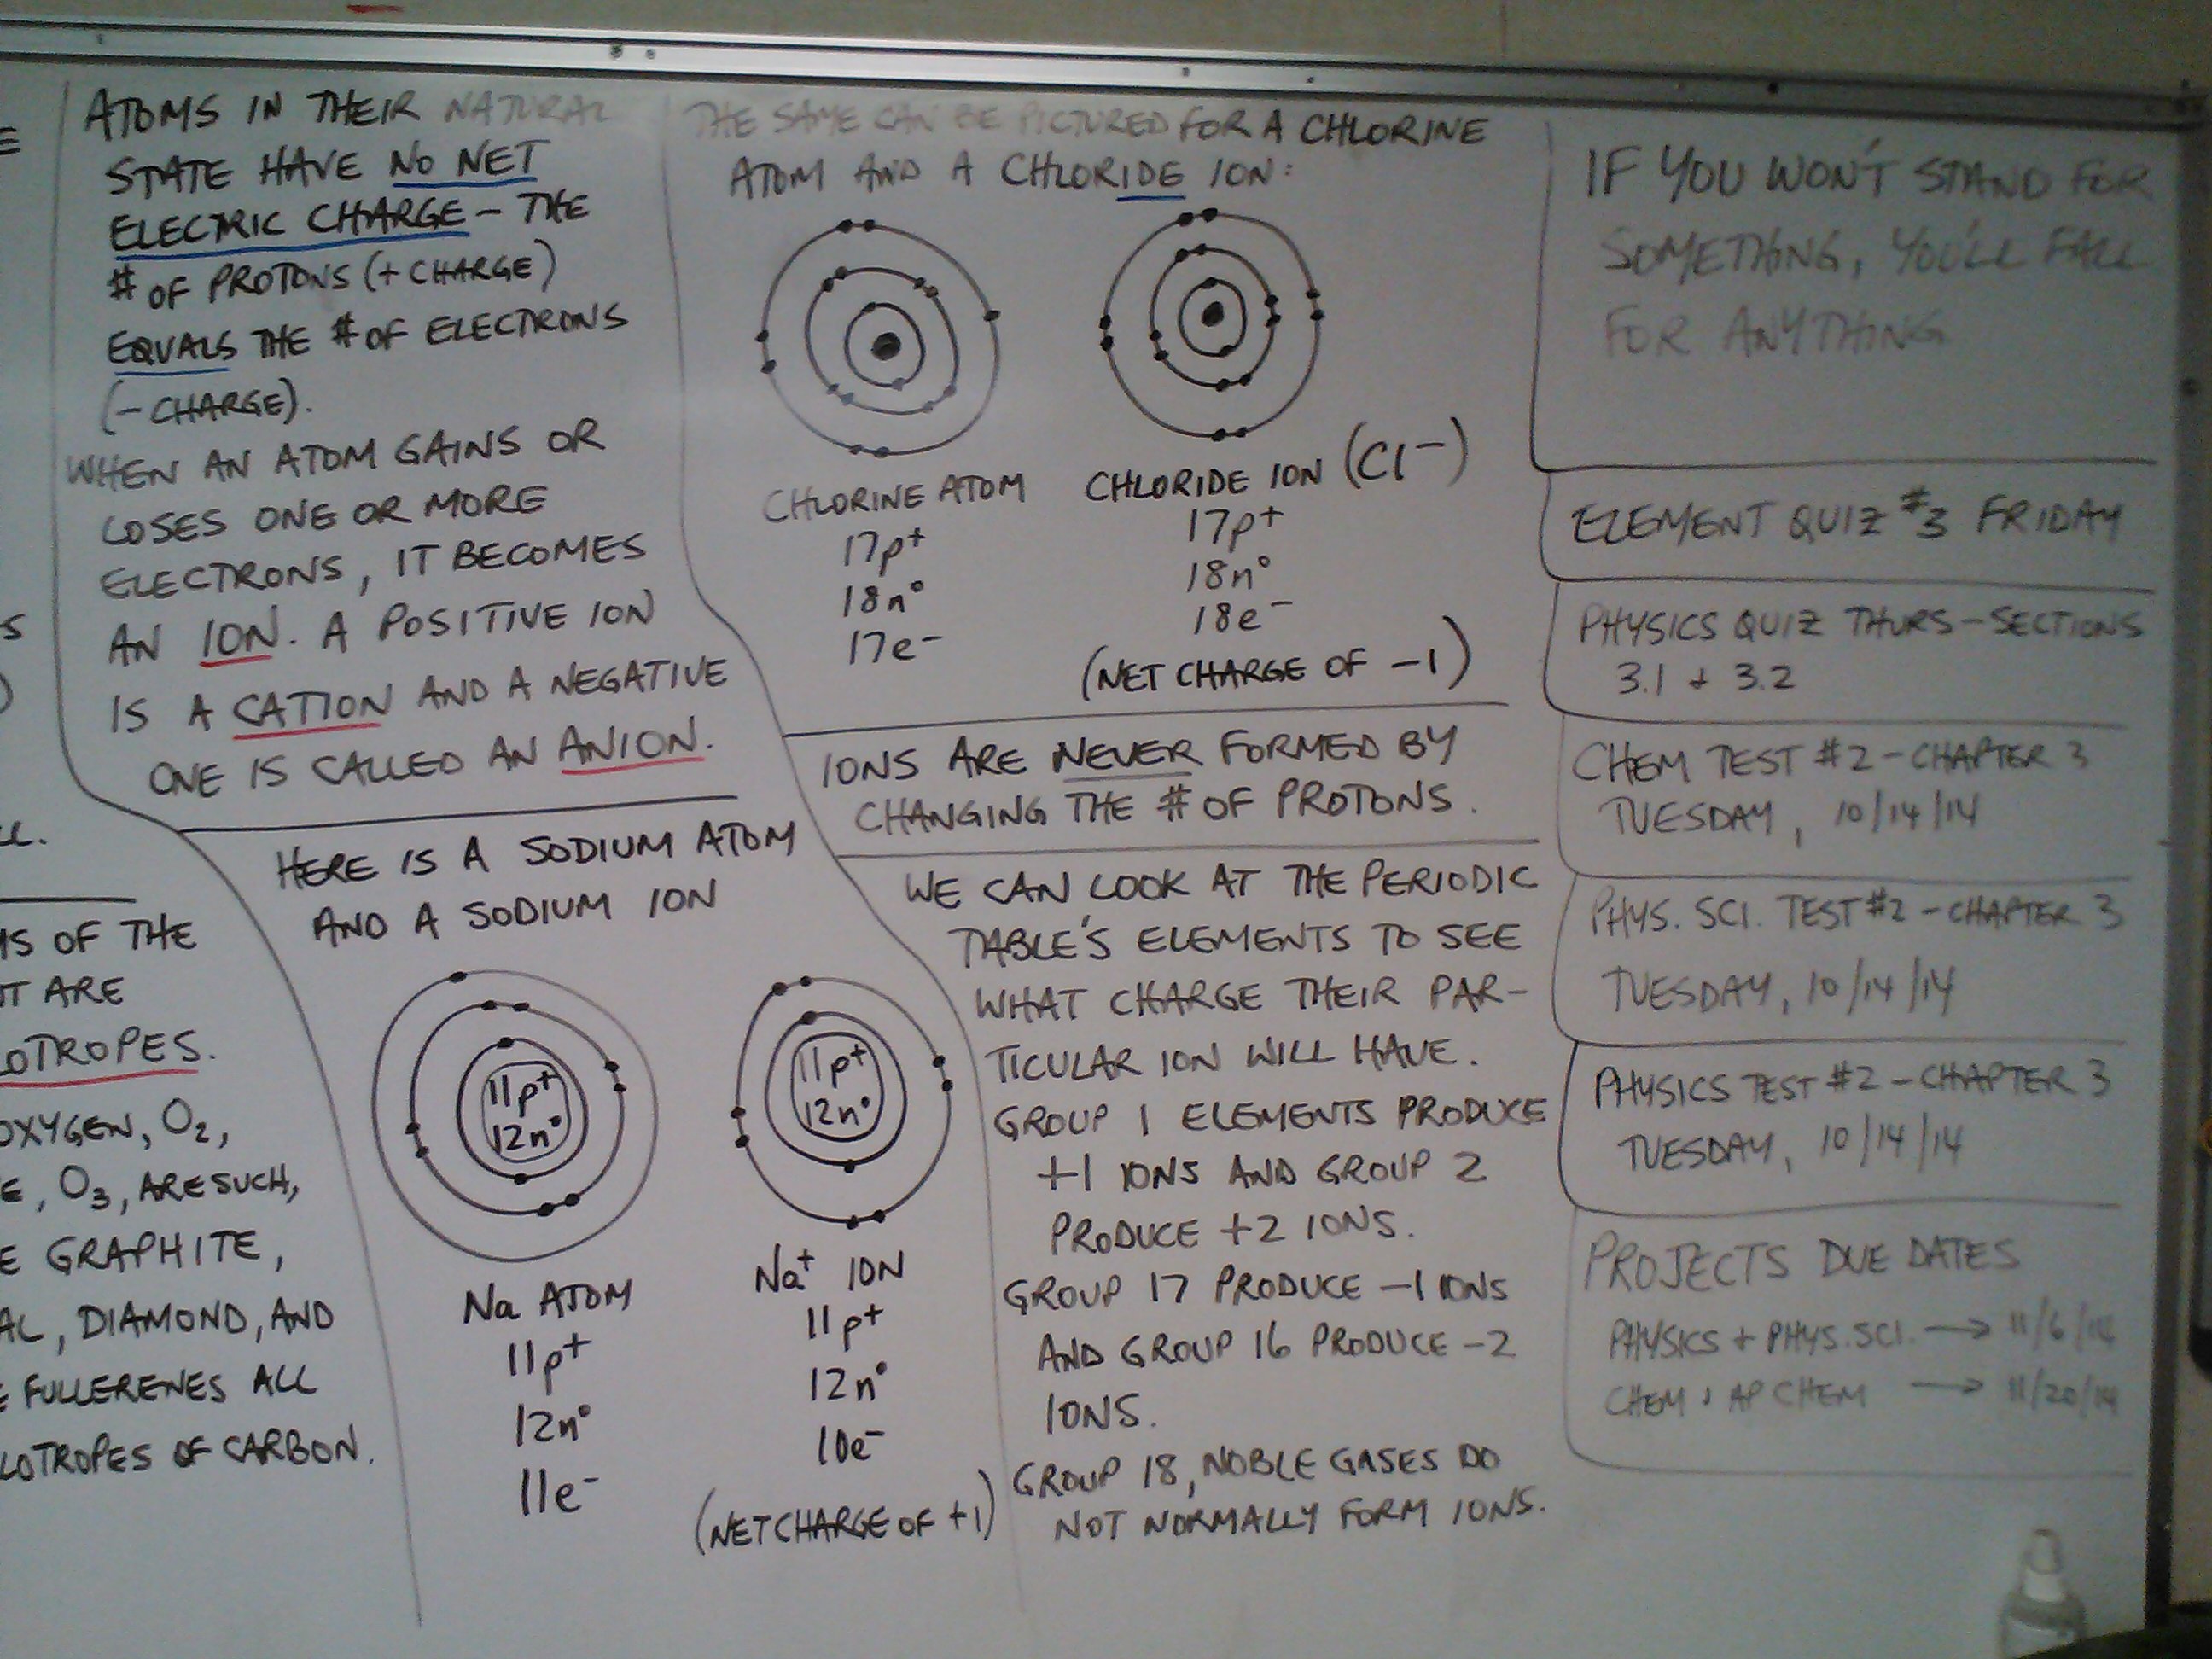 E
S
)
LL.
MS OF THE
OT ARE
LOTROPES.
OXYGEN, O₂,
E, O₃, ARE SUCH,
E GRAPHITE,
AL, DIAMOND, AND
E FULLERENES ALL
LOTROPES OF CARBON.
ATOMS IN THEIR NATURAL
STATE HAVE NO NET
ELECTRIC CHARGE - THE
# OF PROTONS (+ CHARGE)
EQUALS THE # OF ELECTRONS
(- CHARGE).
WHEN AN ATOM GAINS OR
LOSES ONE OR MORE
ELECTRONS, IT BECOMES
AN ION. A POSITIVE ION
IS A CATION AND A NEGATIVE
ONE IS CALLED AN ANION.
HERE IS A SODIUM ATOM
AND A SODIUM ION
11p⁺
12n°
11p⁺
12n°
Na ATOM
11p⁺
12n°
11e⁻
Na⁺ ION
11p⁺
12n°
10e⁻
(NET CHARGE OF +1)
THE SAME CAN BE PICTURED FOR A CHLORINE
ATOM AND A CHLORIDE ION:
CHLORINE ATOM
17p⁺
18n°
17e⁻
CHLORIDE ION (Cl⁻)
17p⁺
18n°
18e⁻
(NET CHARGE OF -1)
IONS ARE NEVER FORMED BY
CHANGING THE # OF PROTONS.
WE CAN LOOK AT THE PERIODIC
TABLE'S ELEMENTS TO SEE
WHAT CHARGE THEIR PAR-
TICULAR ION WILL HAVE.
GROUP 1 ELEMENTS PRODUCE
+1 IONS AND GROUP 2
PRODUCE +2 IONS.
GROUP 17 PRODUCE -1 IONS
AND GROUP 16 PRODUCE -2
IONS.
GROUP 18, NOBLE GASES DO
NOT NORMALLY FORM IONS.
IF YOU WON'T STAND FOR
SOMETHING, YOU'LL FALL
FOR ANYTHING
ELEMENT QUIZ #3 FRIDAY
PHYSICS QUIZ THURS - SECTIONS
3.1 + 3.2
CHEM TEST #2 - CHAPTER 3
TUESDAY, 10/14/14
PHYS. SCI. TEST #2 - CHAPTER 3
TUESDAY, 10/14/14
PHYSICS TEST #2 - CHAPTER 3
TUESDAY, 10/14/14
PROJECTS DUE DATES
PHYSICS + PHYS. SCI. → 11/6/14
CHEM + AP CHEM → 11/20/14